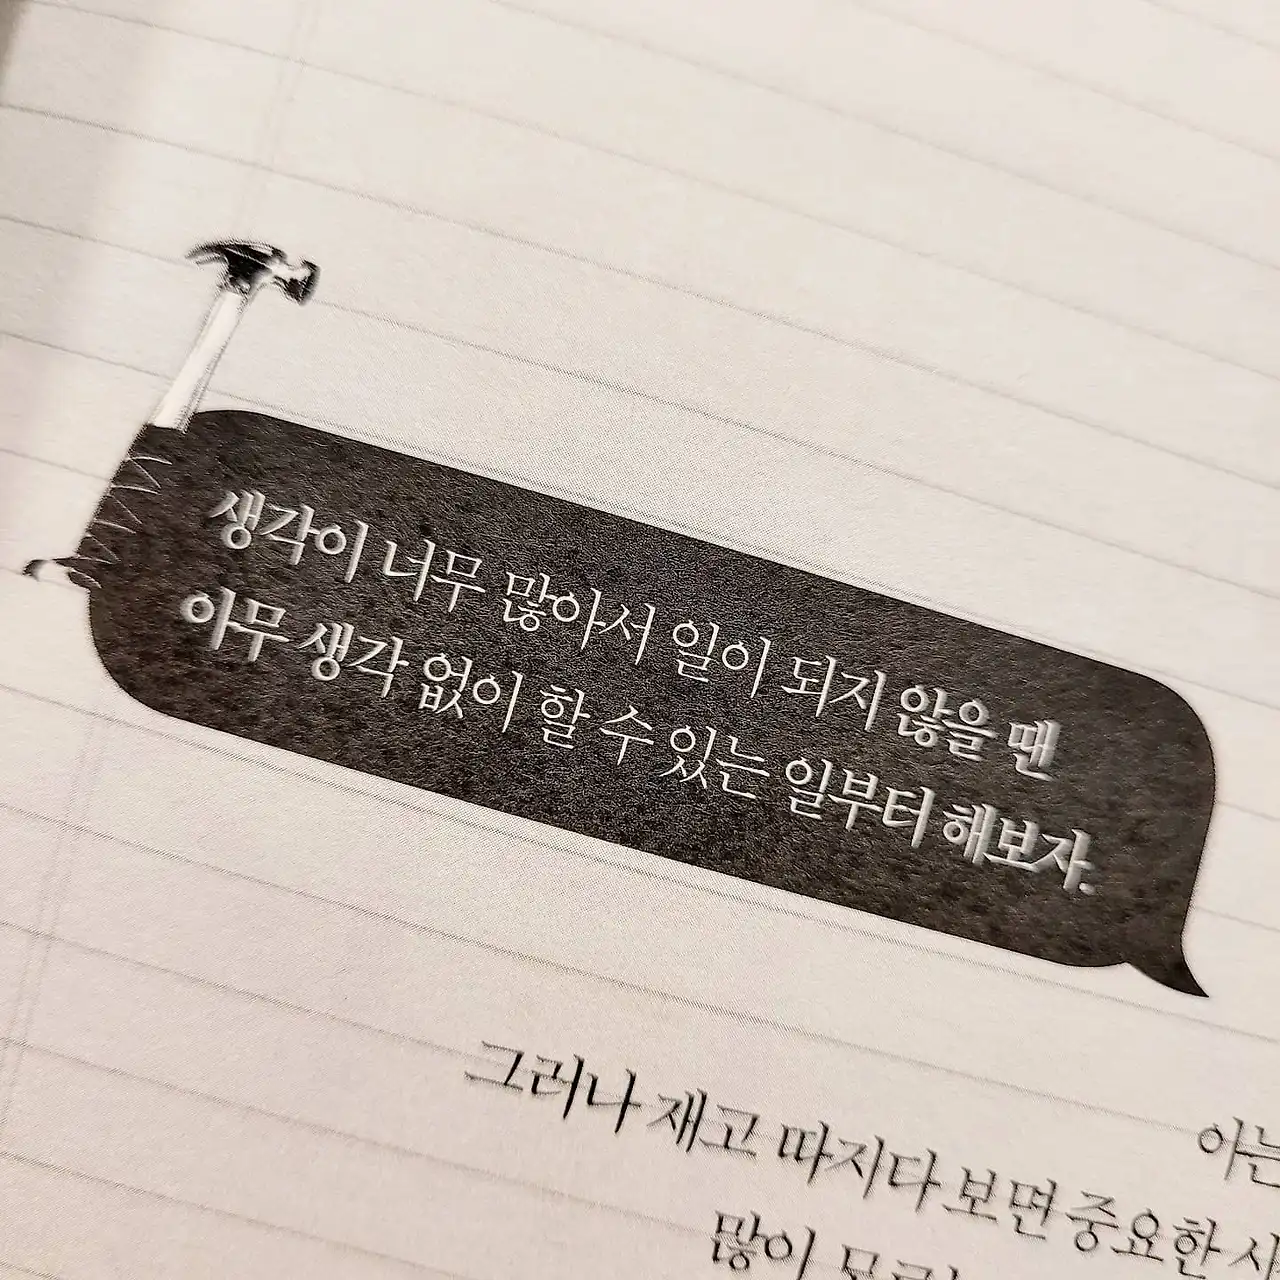 생각이 너무 많아서 일이 되지 않을 땐
아무 생각 없이 할 수 있는 일부터 해보자.
아는
그러나 재고 따지다 보면 중요한
많이